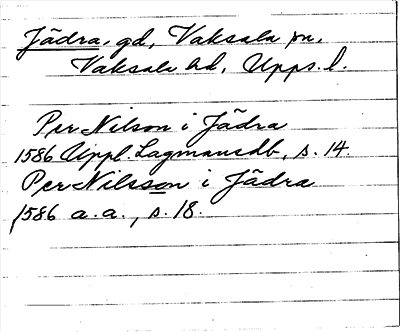 Jädra, gd, Vaksala sn,
Vaksala hd, Upps. l.
Per Nilson i Jädra
1586 Uppl. Lagmansdb, s. 14
Per Nilsson i Jädra
1586 a.a., s. 18.